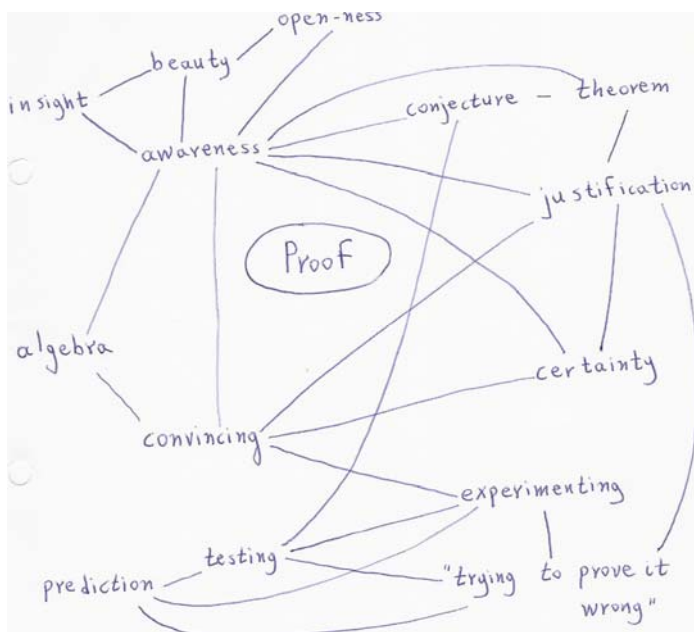 open-ness
beauty
insight
conjecture - theorem
awareness
justification
Proof
algebra
certainty
convincing
experimenting
testing
prediction
"trying to prove it
wrong"